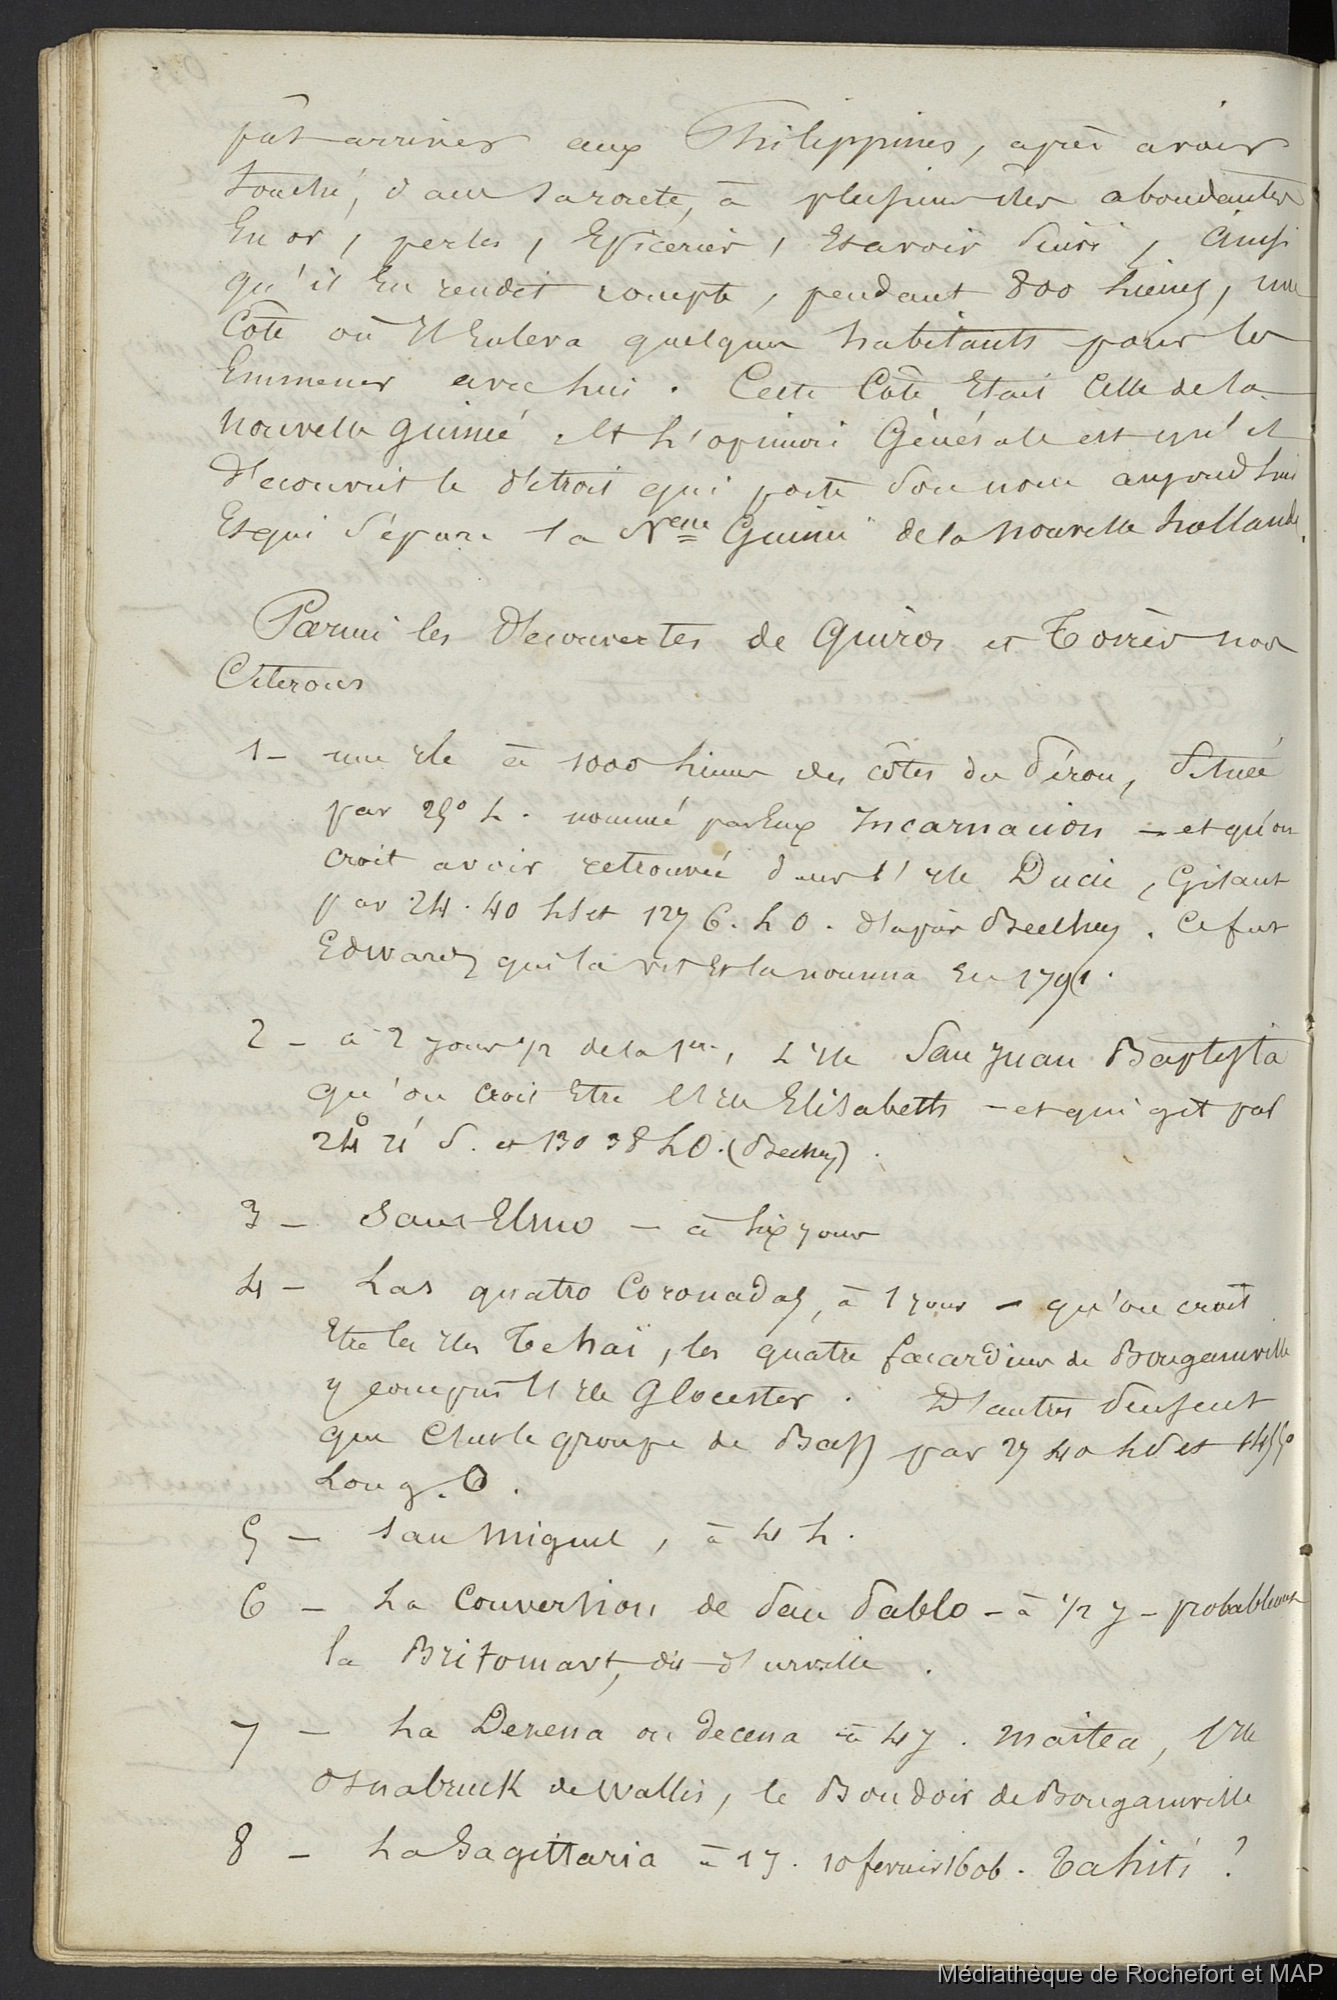 pût arriver aux Philippines, après avoir
touché, dans sa route, à plusieurs îles abondantes
En or, perles, Epiceries, Et avoir suivi, ainsi
qu'il En rendit compte, pendant 800 lieues, une
Côte où Il Enleva quelques habitants pour les
Emmener avec lui. Cette Côte Etait Celle de la
Nouvelle Guinée. Et l'opinion Générale est qu'il
Découvrit le détroit qui porte son nom aujourd'hui
Et qui Sépare la Nelle Guinée de la Nouvelle hollande.
Parmi les Découvertes de Quiros et Torrès nous
Citerons
1 - une Ile à 1000 lieues des côtes du Pérou, Située
par 25° L. nommée par Eux Incarnacion - et qu'on
croit avoir retrouvée dans l'Ile Ducie, Gisant
par 24.40 LS et 127 6. L O. d'après Beechey. Ce fut
Edwards qui la vit Et la nomma En 1791.
2 - à 2 jours 1/2 de la 1ere, L'Ile San Juan Baptista
qu'on croit Etre l'Ile Elisabeth - et qui gît par
24° 21' S. et 130 38 LO. (Beechey).
3 - Sant Elmo - à Six jours
4 - Las quatro Coronadas, à 1 jour - qu'on croit
Etre les Iles Tehaï, les quatre facardins de Bougainville
y compris l'Ile Glocester. D'autres pensent
que C'est le groupe de Bass par 27 40 LS et 145°
Long. O.
5 - San Miguel, à 4 L.
6 - La Conversion de San Pablo - à 1/2 J - probablement
la Britomart, dit d'urville.
7 - La Dezena ou Decena à 4 J. Maïtea, l'Ile
Osnabruck de Wallis, le Boudoir de Bougainville
8 - La Sagittaria à 1 J. 10 fevrier 1606. Tahiti?
Médiathèque de Rochefort et MAP